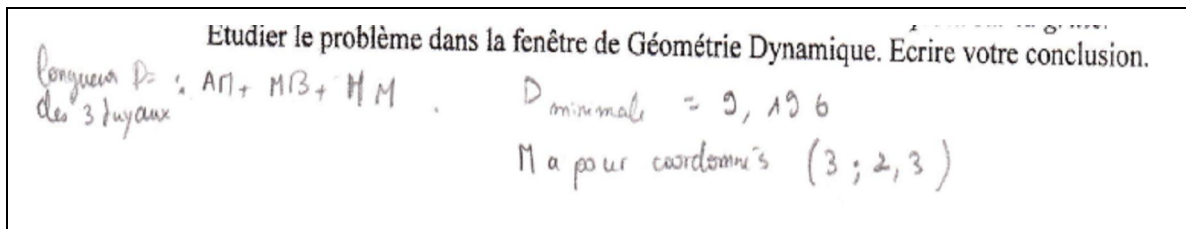 Etudier le problème dans la fenêtre de Géométrie Dynamique. Ecrire votre conclusion.
Longueur D= : AM + MB + HM .
des 3 tuyaux
D minimale = 9,196
M a pour coordonnés (3 ; 2,3)